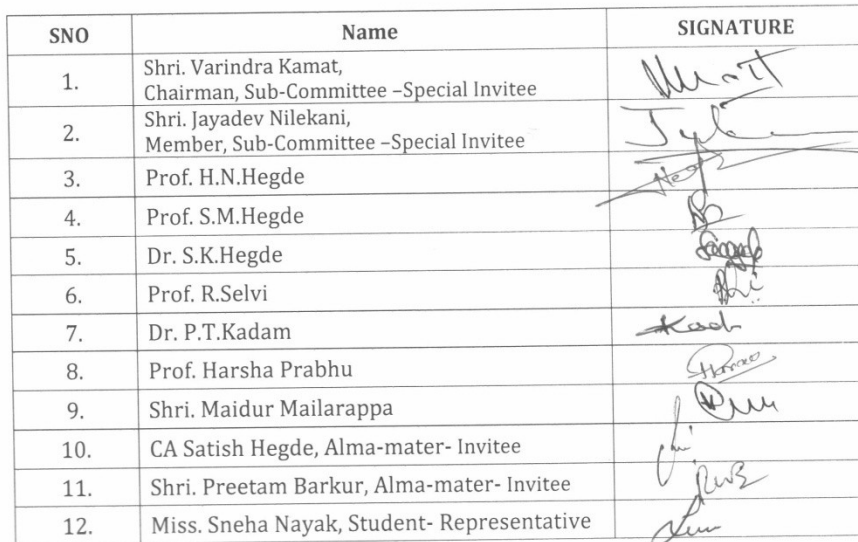 SNO Name SIGNATURE
1. Shri. Varindra Kamat,
Chairman, Sub-Committee –Special Invitee
2. Shri. Jayadev Nilekani,
Member, Sub-Committee –Special Invitee
3. Prof. H.N.Hegde
4. Prof. S.M.Hegde
5. Dr. S.K.Hegde
6. Prof. R.Selvi
7. Dr. P.T.Kadam
8. Prof. Harsha Prabhu
9. Shri. Maidur Mailarappa
10. CA Satish Hegde, Alma-mater- Invitee
11. Shri. Preetam Barkur, Alma-mater- Invitee
12. Miss. Sneha Nayak, Student- Representative